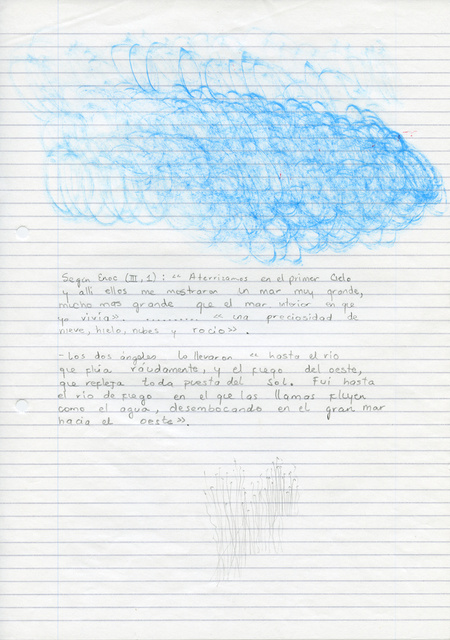 Según Enoc (III, 1): «Aterrizamos en el primer Cielo
y allí ellos me mostraron un mar muy grande,
mucho mas grande que el mar interior en que
yo vivía». .......... «una preciosidad de
nieve, hielo, nubes y rocío».
- Los dos ángeles lo llevaron «hasta el río
que fluía ráudamente, y el fuego del oeste,
que refleja toda puesta del Sol. Fui hasta
el río de fuego en el que las llamas fluyen
como el agua, desembocando en el gran mar
hacia el oeste».